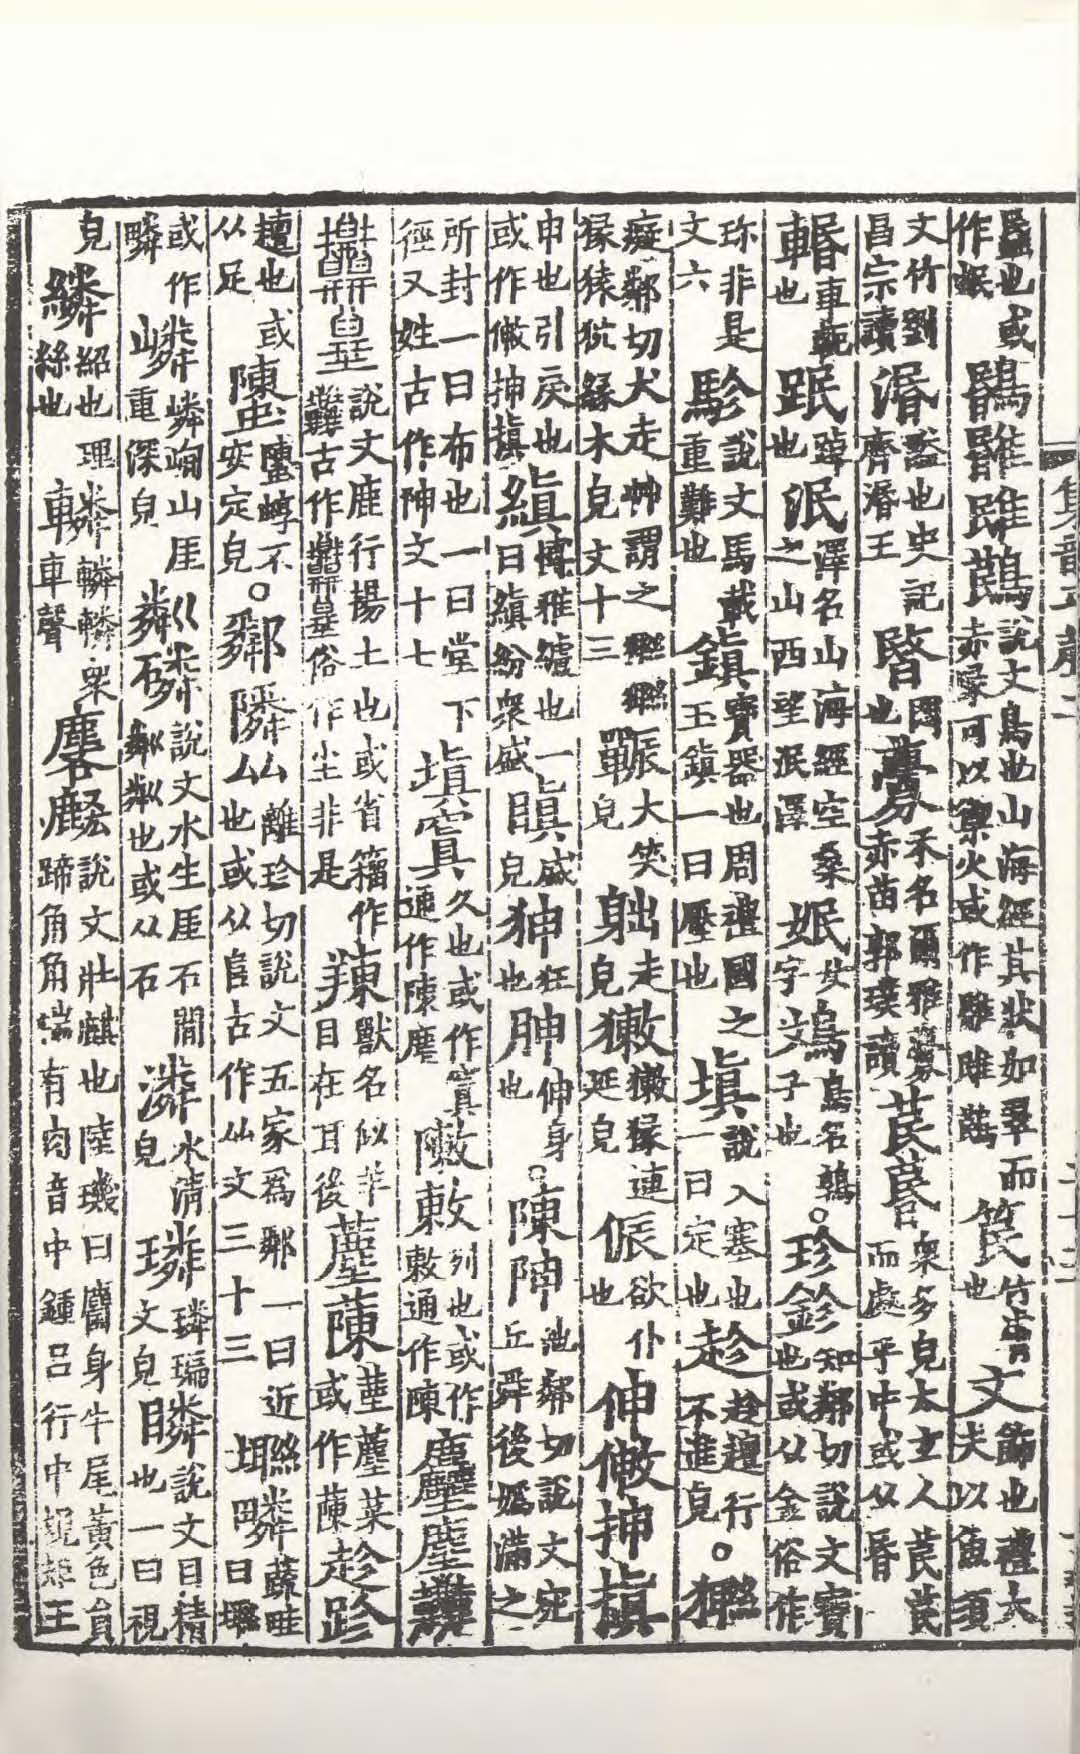 也或作說文鳥也山海經其狀如翠而赤喙可以禦火或作笢竹膚也文飾也禮大夫以魚須
文竹劉昌宗讀湣謚也史記齊湣王暋悶也虋禾名爾雅虋赤苗郭璞讀苠衆多皃太玄人苠苠而處乎中或从昬
車軛也泯澤名山海經空桑之山西望泯澤姄女字鳼鳥名鶉子也○珍鉁知鄰切說文寶也或从金俗作
珎非是文六駗說文馬載重難也鎮寶器也周禮國之玉鎮一曰壓也填說文塞也一曰定也趁趁䞣行不進皃○
癡鄰切犬走艸謂之猿狖緣木皃文十三辴大笑皃走皃獤獤猭連延皃侲欲仆也伸㑞抻搷
申也引戾也或作㑞抻搷縝博雅纑也一曰縝紛衆盛皃瞋盛狆狂也胂伸身也○陳池鄰切說文宛丘舜後媯滿之
所封一曰布也一曰堂下徑又姓古作文十七塡窴久也或作窴通作陳塵敶列也或作通作陳塵
說文鹿行揚土也或省籀作古作俗作尘非是獸名似羊目在耳後蔯菜或作蔯趁跈
䞣也或从足螴螴蜳不安定皃○鄰隣厸離珍切說文五家爲鄰一曰近也或从𨸏古作厸文三十三壣疄蔬畦曰壣
或作疄嶙嶙峋山厓重深皃粼說文水生厓石間粼粼也或从石潾水清皃璘璘㻞文皃瞵說文目精也一曰視
皃繗紹也理絲也轔轔轔衆車聲麐說文牡麒也陸璣曰麕身牛尾黃色員蹄角角端有肉音中鍾呂行中規矩王